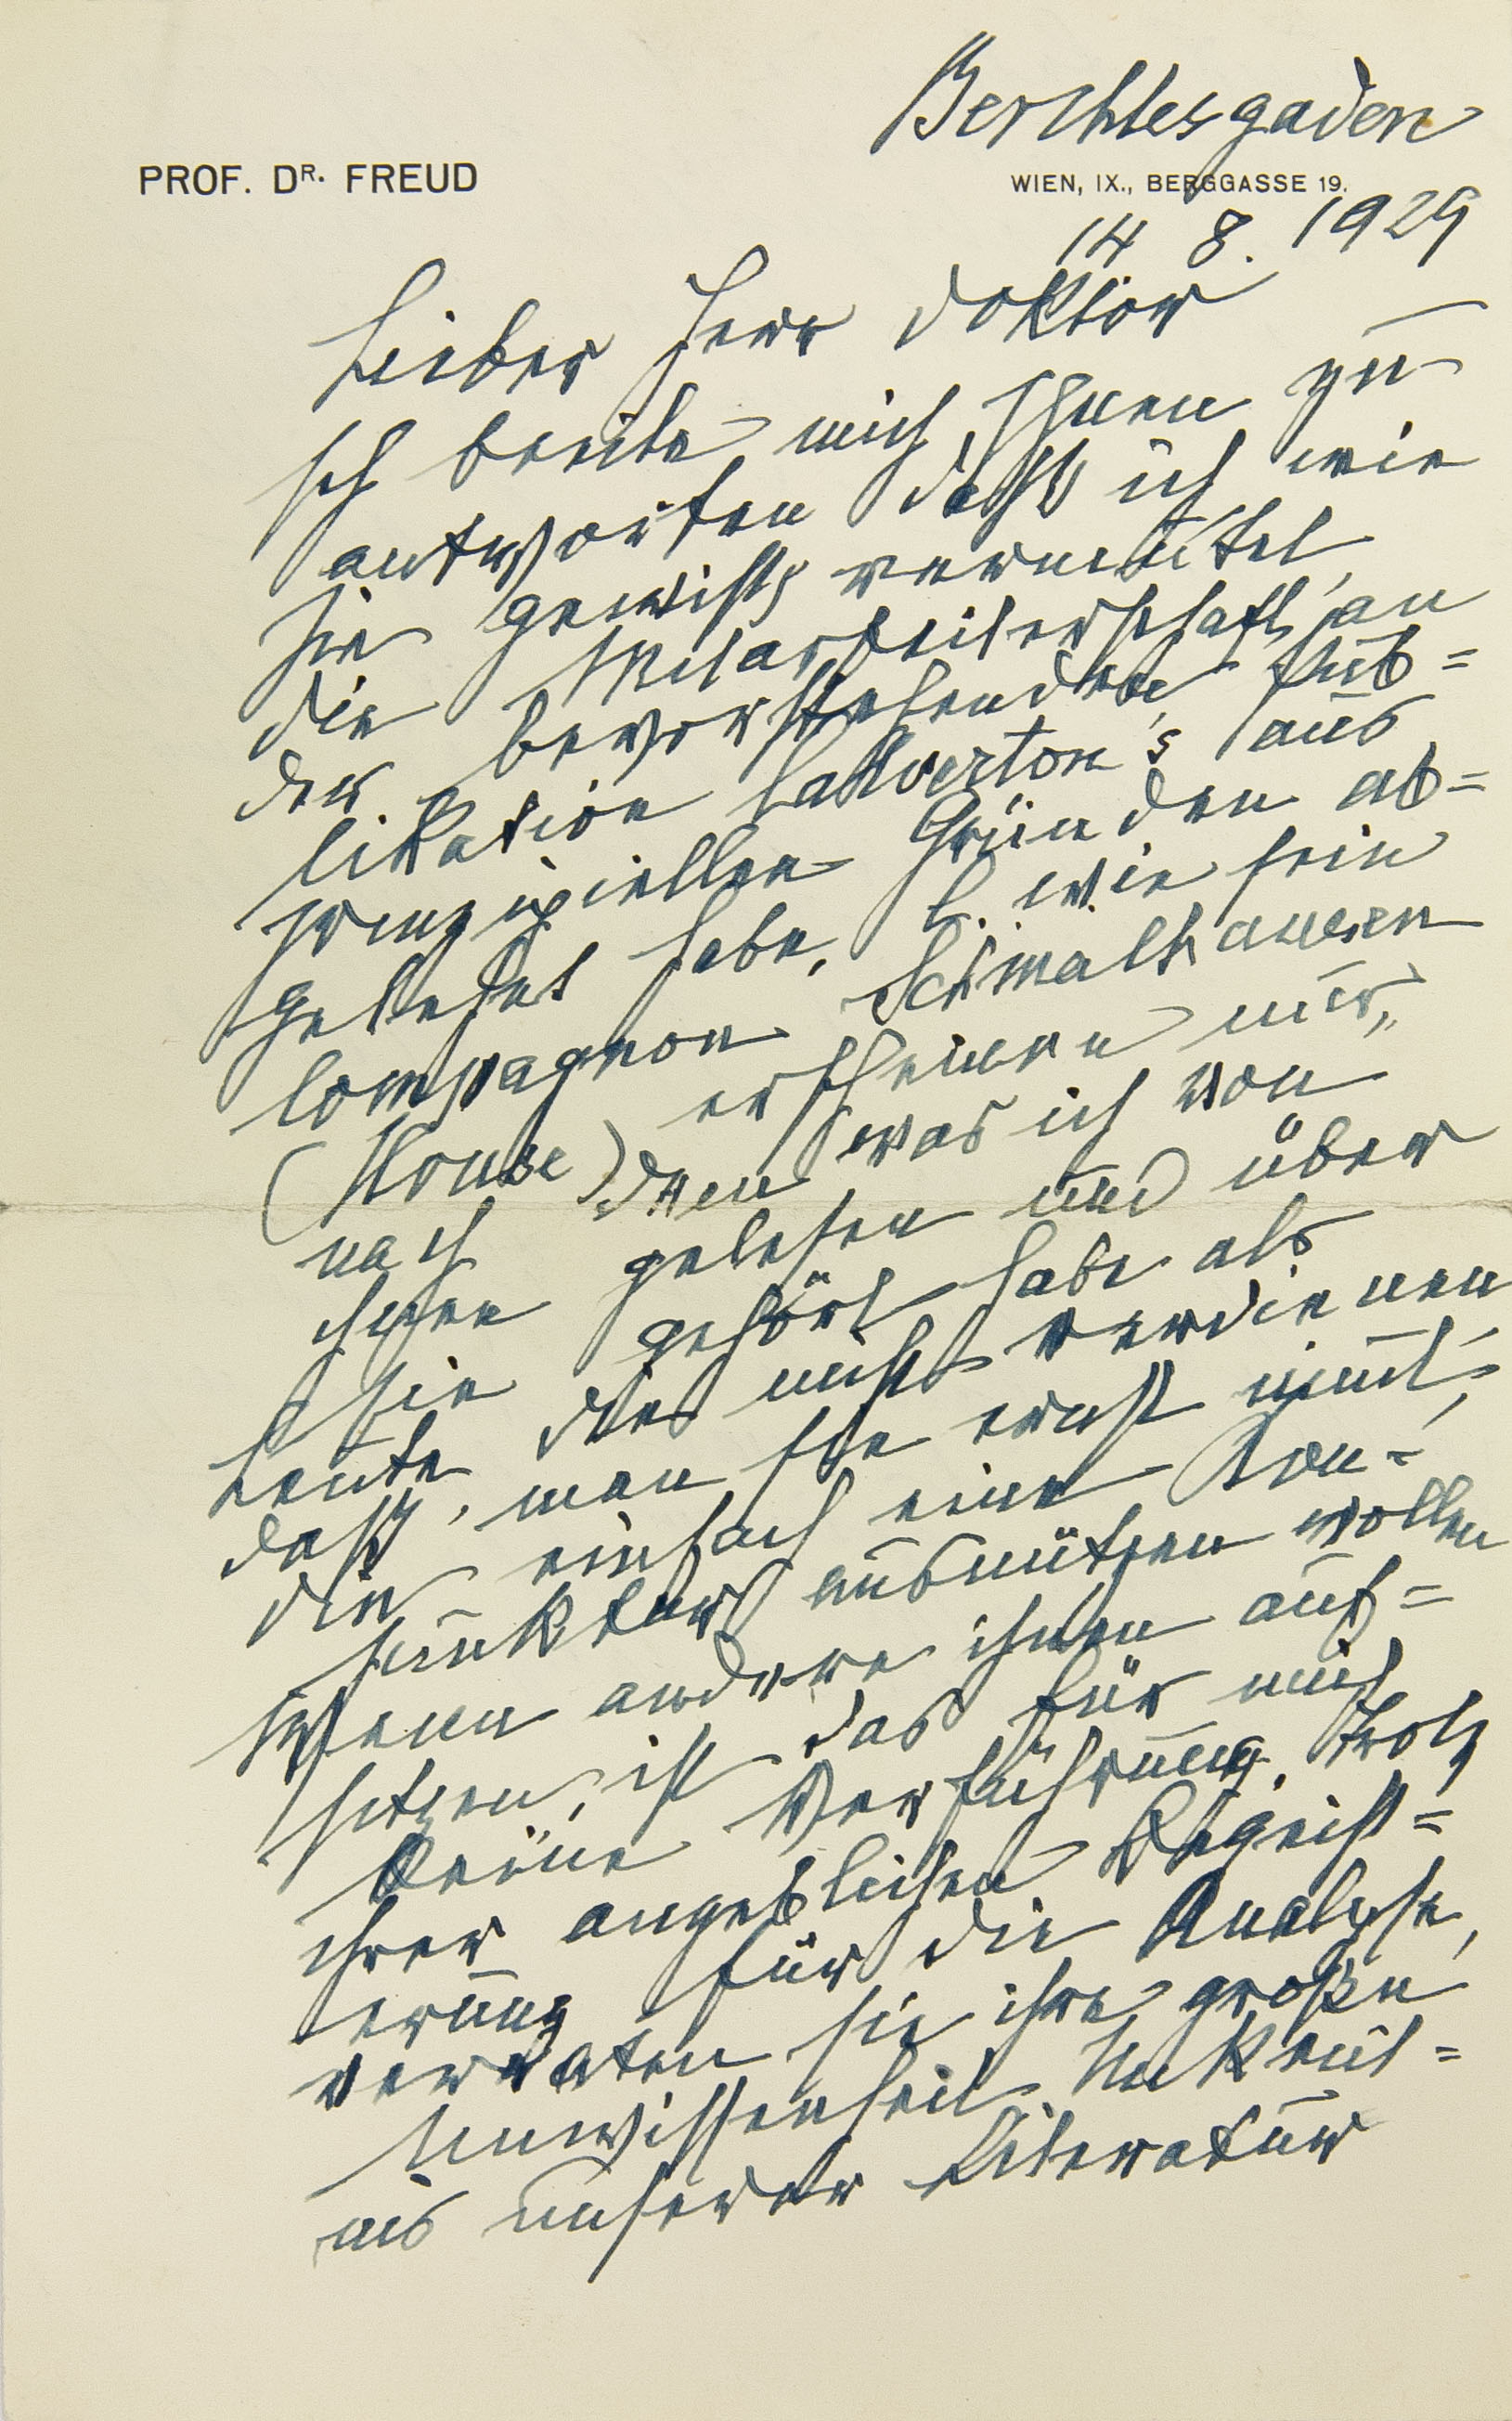 Berchtesgaden
PROF. DR. FREUD
WIEN, IX., BERGGASSE 19.
14 8. 1929
Lieber Herr Doktor
Ich beeile mich Ihnen zu
antworten daß ich wie
Sie gewiß vermutet,
die Mitarbeiterschaft an
der bevorstehenden Pub=
likation Calverton's aus
prinzipiellen Gründen ab=
gelehnt habe. C. wie sein
Compagnon Schmalhausen
(House) erscheinen mir,
nach dem was ich von
ihnen gelesen und über
sie gehört habe als
Leute die nicht verdienen
daß man sie ernst nimmt,
die einfach eine Kon=
junktur ausnützen wollen
Wenn andere ihnen auf=
sitzen, ist das für mich
keine Verführung. Trotz
ihrer angeblichen Begeist=
erung für die Analyse,
verraten sie ihre große
Unwissenheit Unkennt=
nis unserer Literatur